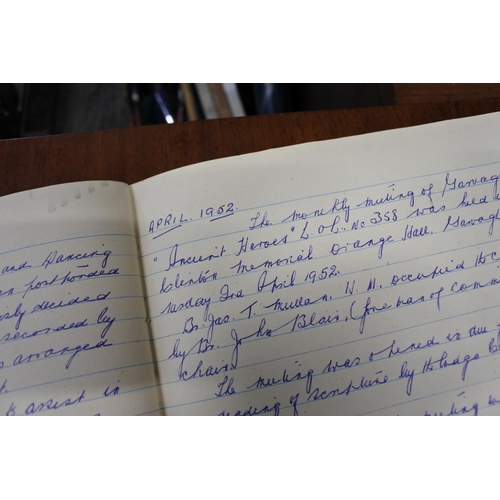 and Dancing
postponded
decided
recorded by
arranged
assist in
APRIL. 1952.
The monthly meeting of Garvagh
"Ancient Heroes" L.O.L. No 358 was held
Memorial Orange Hall. Garvagh
April 1952.
Br. Jas. T. Mullan. W.M. occupied
by Br. John Blair. (fore man of comm
chair.
The meeting was opened in due
reading of scripture by
meeting